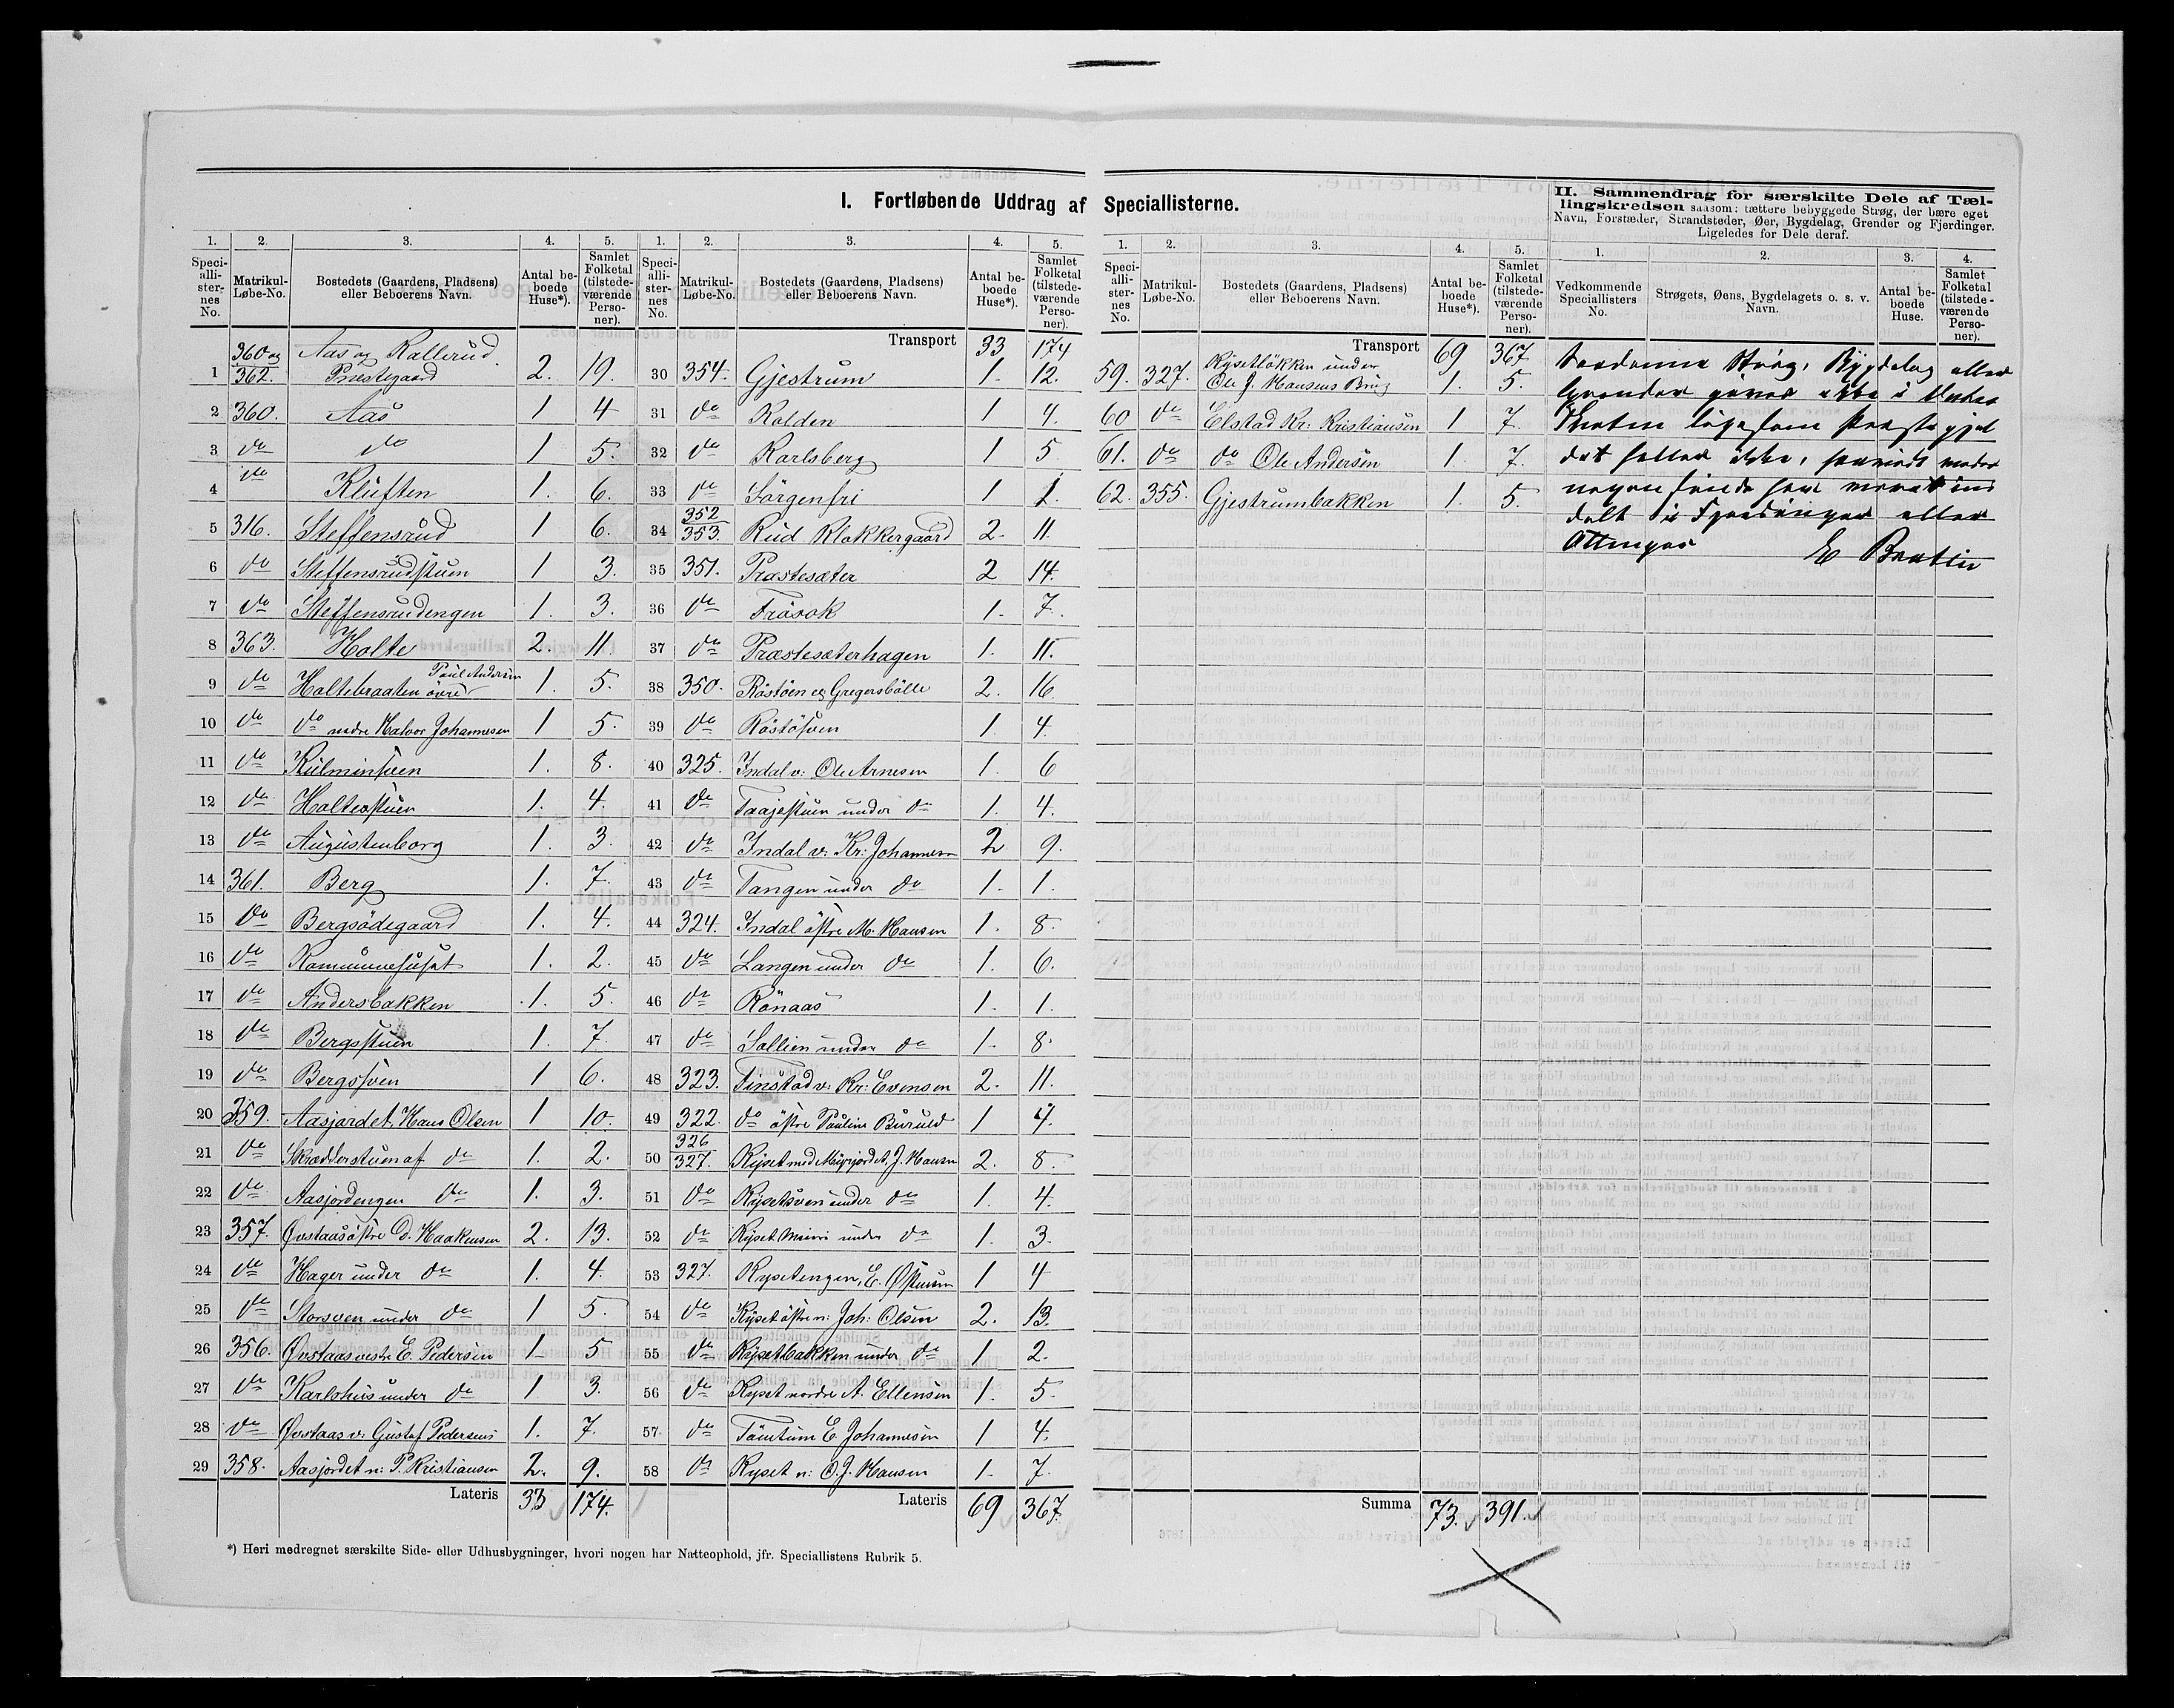 I. Fortløbende Uddrag af Speciallisterne.
1. 2. 3. 4. 5.
Speci-alli-ster-nes No. Matrikul-Løbe-No. Bostedets (Gaardens, Pladsens) eller Beboerens Navn. Antal be-boede Huse*). Samlet Folketal (tilstede-værende Perso-ner).
360 og 362. Aas og Kallerud
1 Præstegaard 2. 19.
2 360. Aas 1 4
3 do do 1 5.
4 do Kluften 1. 6.
5 316. Steffensrud 1 6.
6 do Steffensrudstuen 1 3.
7 do Steffensrudengen 1. 3.
8 363. Holte 2. 11.
9 do Holtebraaten övre Paul Andersen 1. 5.
10 do do nedre Halvor Johannesen 1 5.
11 do Kulminsveen 1. 8.
12 do Holteostuen 1. 4.
13 do Augustenborg 1. 3.
14 361. Berg 1. 7.
15 do Bergsödegaard 1. 4.
16 do Kommunehuset 1. 2.
17 do Andersbakken 1. 5.
18 do Bergsstuen 1. 7.
19 do Bergsveen 1 6.
20 359. Aasjordet, Hans Olsen 1 10.
21 do Skrædderstuen af do 1. 2.
22 do Aasjordengen do 1. 3.
23 357. Øvstaas östre D. Haakensen 2. 13.
24 do Hager under do 1. 4.
25 do Storsveen under do 1 5.
26 356. Øvstaas vestr. E. Pedersen 1 5
27 do Karlohus under do 1 3.
28 do Øvstaas v: Gustaf Pedersens 1. 7.
29 358. Aasjordet n: P. Kristiansen 2. 9.
Lateris 33 174.
1. 2. 3. 4. 5.
Speci-alli-ster-nes No. Matrikul-Løbe-No. Bostedets (Gaardens, Pladsens) eller Beboerens Navn. Antal be-boede Huse*). Samlet Folketal (tilstede-værende Perso-ner).
Transport 33 174
30 354. Gjestrum 1. 12.
31 do Kolden 1 4.
32 do Karlsberg 1 5
33 do Sörgenfri 1 1.
34 352 353. Rud Klokkergaard 2. 11.
35 351. Præstesæter 2 14.
36 do Fråsok 1. 7.
37 do Præstesæterhagen 1. 11.
38 350. Röstöen og Gregersbölle 2. 16.
39 do Röstösveen 1. 4.
40 325. Indal v: Ole Arnesen 1. 6
41 do Taajestuen under do 1. 4.
42 do Indal v: Kr: Johannesen 2 9.
43 do Tangen under do 1. 1.
44 324. Indal östre M. Hansen 1. 8.
45 do Langen under do 1. 6.
46 do Rönaas 1. 1.
47 do Sollien under do 1. 8.
48 323. Finstad v: Kr: Evensen 2. 11.
49 322. do östre Pauline Buruld 1 4.
50 326 327. Rÿset med Myrjordet, J. Hansen 2. 8.
51 do Rÿsetsveen under do 1. 4.
52 do Rÿset Meieri under do 1. 3.
53 327. Rysetengen, E. Østensen 1 4
54 do Rÿset östre n: Joh: Olsen 2. 13.
55 do Rysetbakken under do 1 2.
56 do Ryset nordre A. Ellensen 1. 5.
57 do Tömtum E. Johannesen 1 4.
58 do Ryset n: O. J. Hansen 1. 7.
Lateris 69 367.
1. 2. 3. 4. 5.
Speci-alli-ster-nes No. Matrikul-Løbe-No. Bostedets (Gaardens, Pladsens) eller Beboerens Navn. Antal be-boede Huse*). Samlet Folketal (tilstede-værende Perso-ner).
Transport 69 367.
59. 327. Rÿsetlökken under Ole J. Hansens Brug 1. 5.
60 do Elstad Kr: Kristiansen 1 7.
61. do do Ole Andersen 1. 7.
62. 355. Gjestrumbakken 1. 5.
Summa 73. 391.
II. Sammendrag for særskilte Dele af Tæl-
lingskredsen saasom: tættere bebyggede Strøg, der bære eget
Navn, Forstæder, Strandsteder, Øer, Bygdelag, Grender og Fjerdinger.
Ligeledes for Dele deraf.
1. 2. 3. 4.
Vedkommende Speciallisters No. Strøgets, Øens, Bygdelagets o. s. v. Navn. Antal be-boede Huse. Samlet Folketal (tilstede-værende Perso-ner).
Saadanne Strøg, Bygdelag eller
Grender gives ikke i dette
ligesom Præstegjel
det heller ikke,
nogensinde har været ind
delt i Fjerdinger eller
Ottinger E Bratlie
*) Heri medregnet særskilte Side- eller Udhusbygninger, hvori nogen har Natteophold, jfr. Speciallistens Rubrik 5.